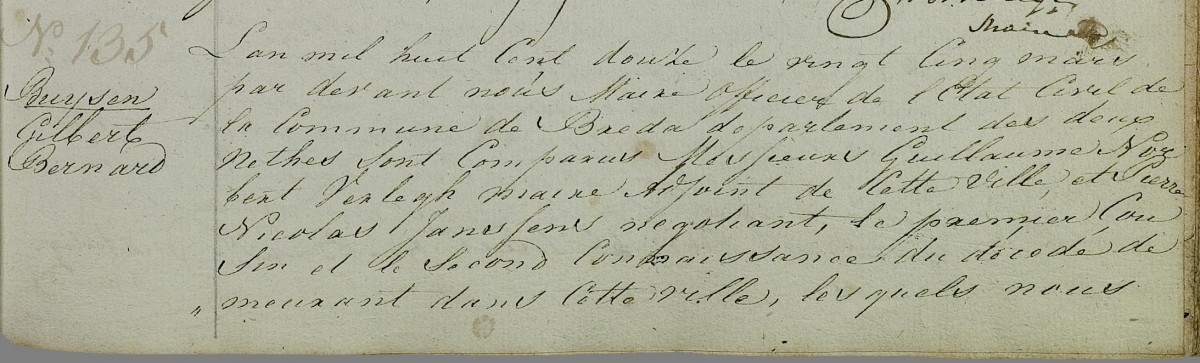 Maire
No. 135
Buysen
Gilbert
Bernard
L'an mil huit Cent douze le vingt Cinq mars
par devant nous Maire Officier de l'Etat Civil de
la Commune de Breda departement des deux
Nethes sont Comparus Messieurs Guillaume Nor
bert Verlegh maire Adjoint de Cette Ville, et Pierre
Nicolas Janssens negotiant, le premier Cou
sin et le Second Connaissance du décedé de
meurant dans Cette ville, lesquels nous